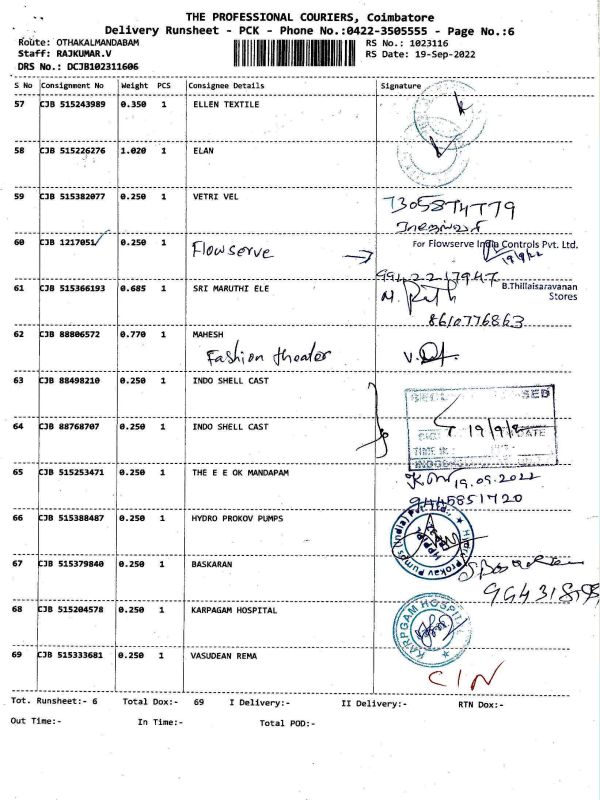 THE PROFESSIONAL COURIERS, Coimbatore
Delivery Runsheet - PCK - Phone No.:0422-3505555 - Page No.:6
Route: OTHAKALMANDABAM RS No.: 1023116
Staff: RAJKUMAR.V RS Date: 19-Sep-2022
DRS No.: DCJB102311606
S No Consignment No Weight PCS Consignee Details Signature
57 CJB 515243989 0.350 1 ELLEN TEXTILE
58 CJB 515226276 1.020 1 ELAN
59 CJB 515382077 0.250 1 VETRI VEL
7305874779
60 CJB 1217051 0.250 1 Flowserve For Flowserve India Controls Pvt. Ltd.
19/9/22
9942217947 B.Thillaisaravanan
61 CJB 515366193 0.685 1 SRI MARUTHI ELE Stores
8610776863
62 CJB 88806572 0.770 1 MAHESH
Fashion theater
63 CJB 88498210 0.250 1 INDO SHELL CAST
64 CJB 88768707 0.250 1 INDO SHELL CAST
DATE
TIME IN
65 CJB 515253471 0.250 1 THE E E OK MANDAPAM
19.09.2022
9445851720
66 CJB 515388487 0.250 1 HYDRO PROKOV PUMPS
Hydro Prokov Pumps (India) Pvt. Ltd.,
67 CJB 515379840 0.250 1 BASKARAN
68 CJB 515204578 0.250 1 KARPAGAM HOSPITAL
KARPGAM HOSPITAL
69 CJB 515333681 0.250 1 VASUDEAN REMA
C/N
Tot. Runsheet:- 6 Total Dox:- 69 I Delivery:- II Delivery:- RTN Dox:-
Out Time:- In Time:- Total POD:-